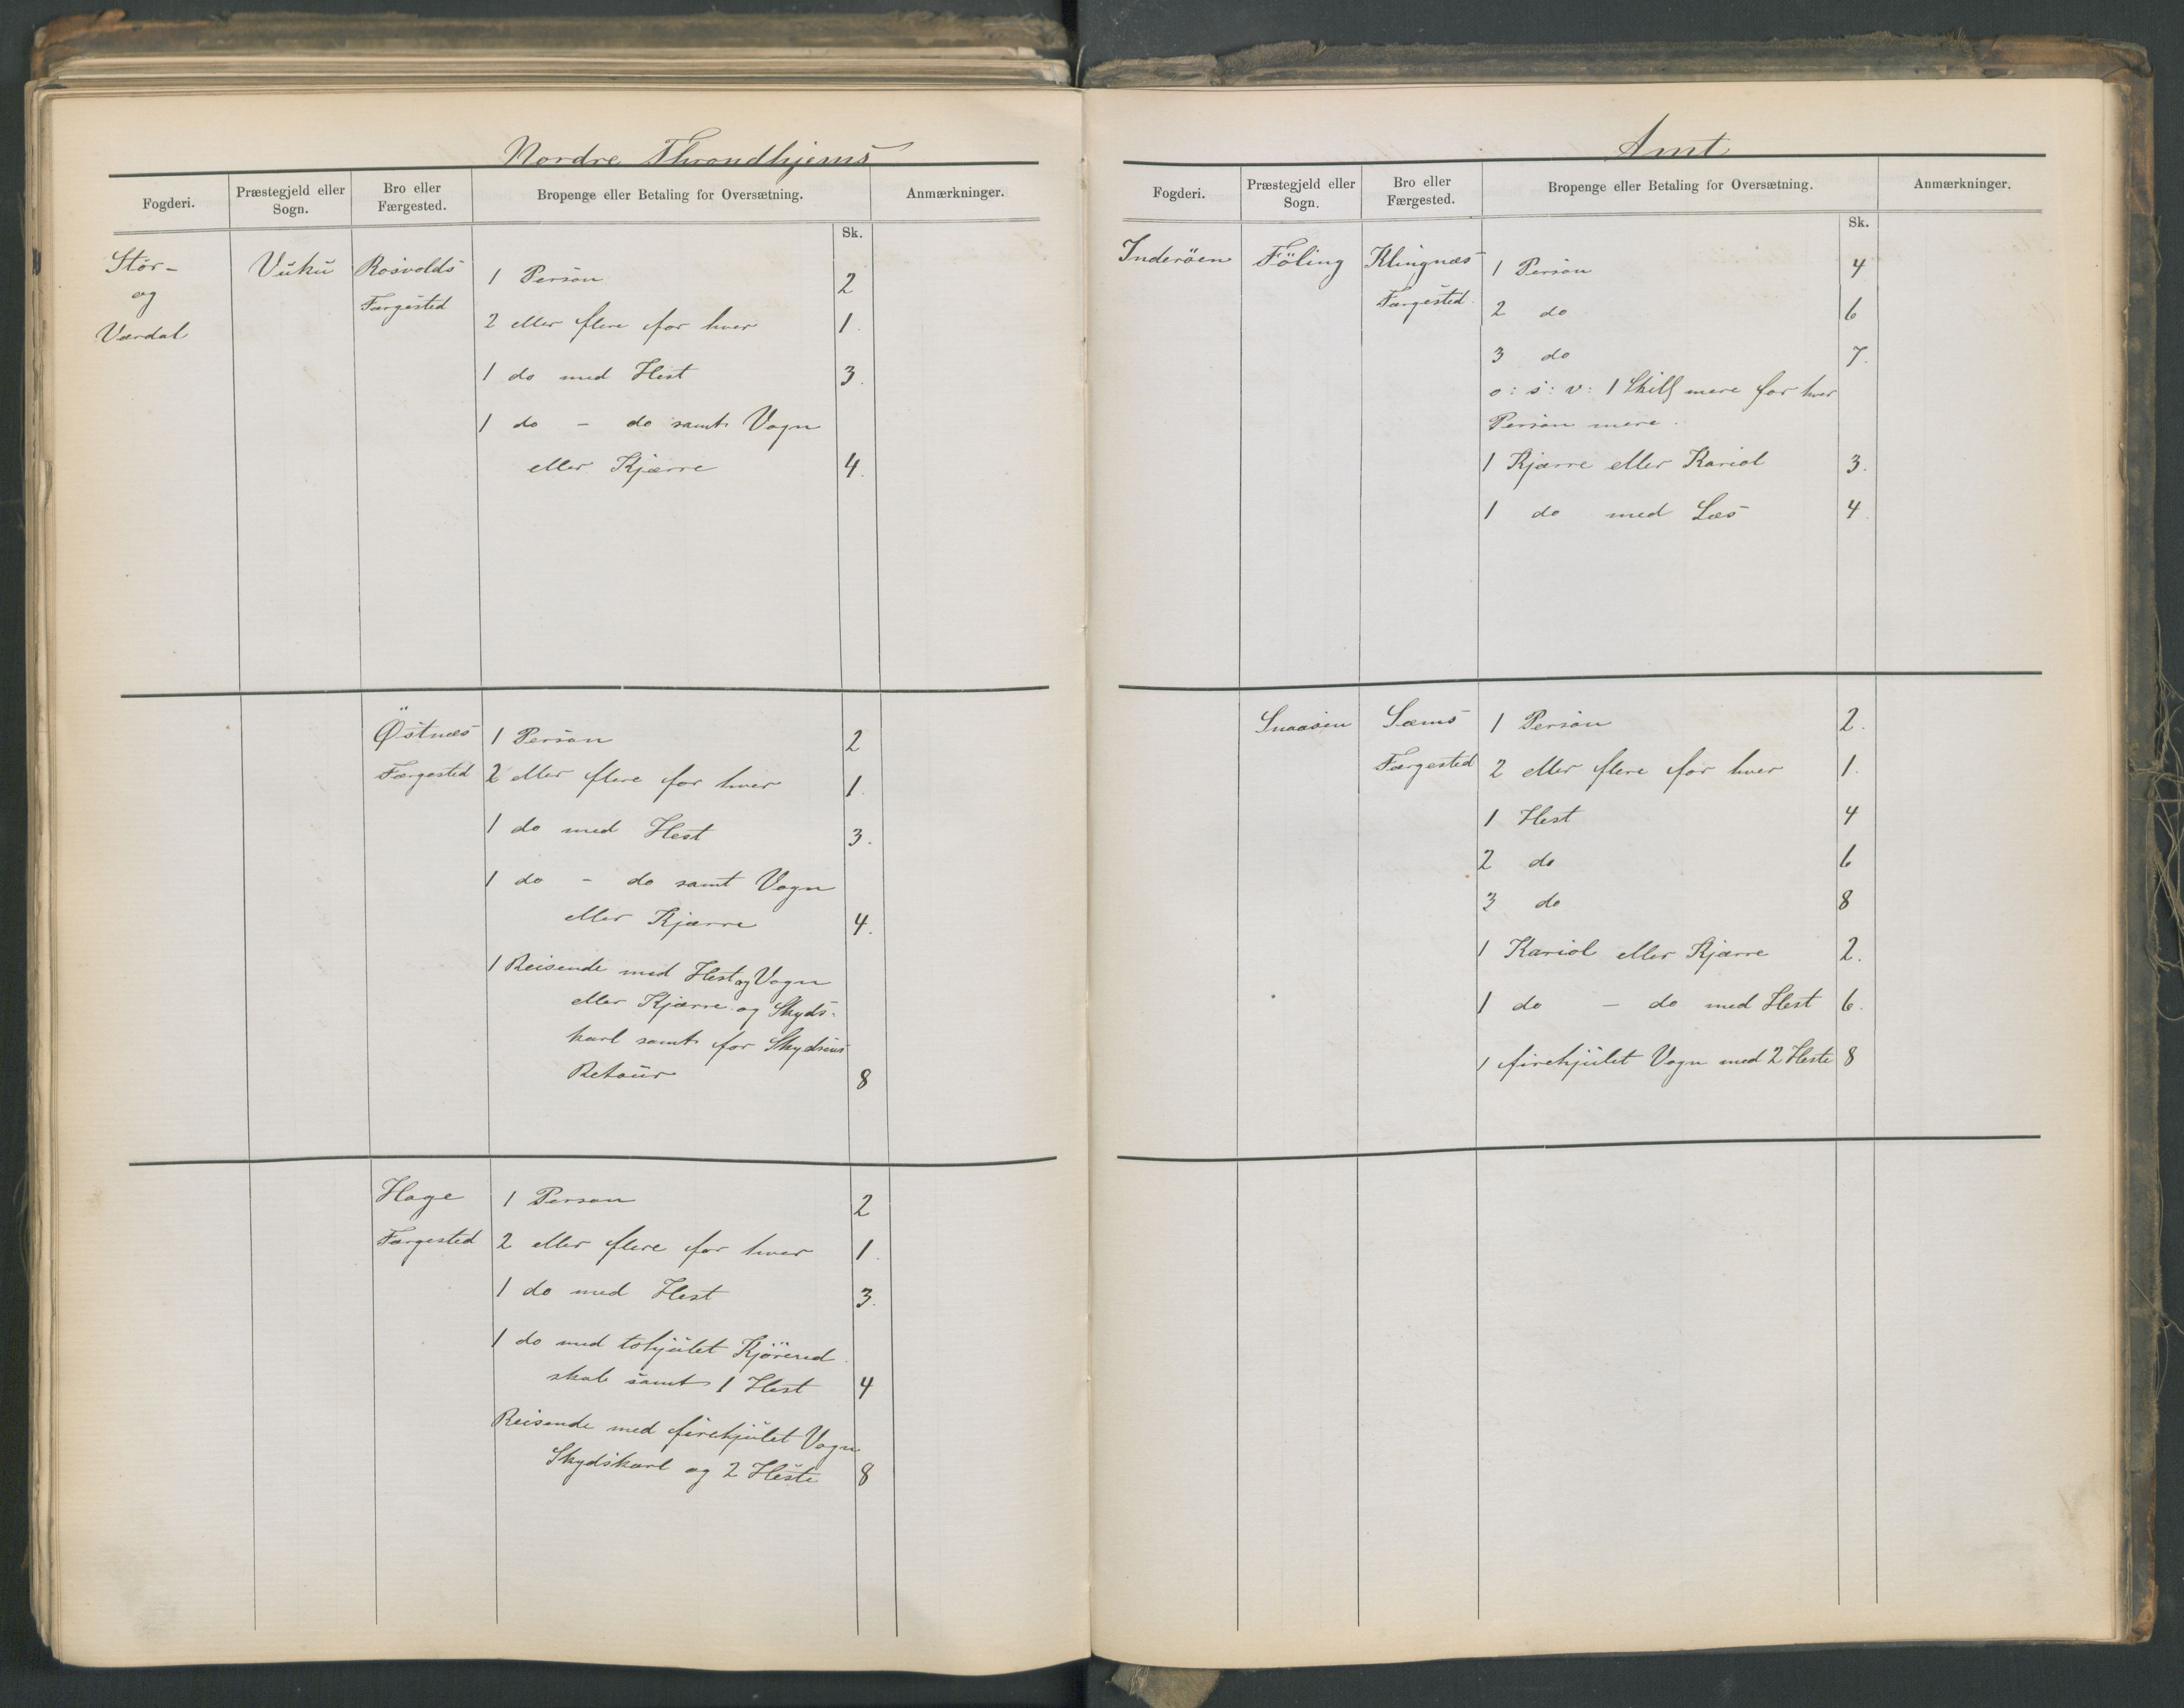 Nordre Throndhjems
Fogderi. Præstegjeld eller Sogn. Bro eller Færgested. Bropenge eller Betaling for Oversætning. Anmærkninger.
Sk.
Stör-
og
Værdal
Vuku
Rosvolds
Færgested
1 Person 2
2 eller flere for hver 1.
1 do med Hest 3.
1 do - do samt Vogn
eller Kjærre 4.
Østnæs
Færgested
1 Person 2
2 eller flere for hver 1.
1 do med Hest 3.
1 do - do samt Vogn
eller Kjærre 4.
1 Reisende med Hest og Vogn
eller Kjærre og Skyds-
karl samt for Skydsens
Retour 8
Hage
Færgested
1 Person 2
2 eller flere for hver 1.
1 do med Hest 3.
1 do med tohjulet Kjöred
skab samt 1 Hest 4
Reisende med firehjulet Vogn
Skydskarl og 2 Heste 8
Amt
Fogderi. Præstegjeld eller Sogn. Bro eller Færgested. Bropenge eller Betaling for Oversætning. Anmærkninger.
Sk.
Inderöen
Föling
Klingnæs
Færgested.
1 Person 4
2 do 6
3 do 7.
o: s: v: 1 Skill mere for hver
Person mere.
1 Kjærre eller Kariol 3.
1 do med Læs 4
Snaasen
Sæms
Færgested
1 Person 2.
2 eller flere for hver 1.
1 Hest 4
2 do 6
3 do 8
1 Kariol eller Kjærre 2.
1 do - do med Hest 6.
1 firehjulet Vogn med 2 Heste 8